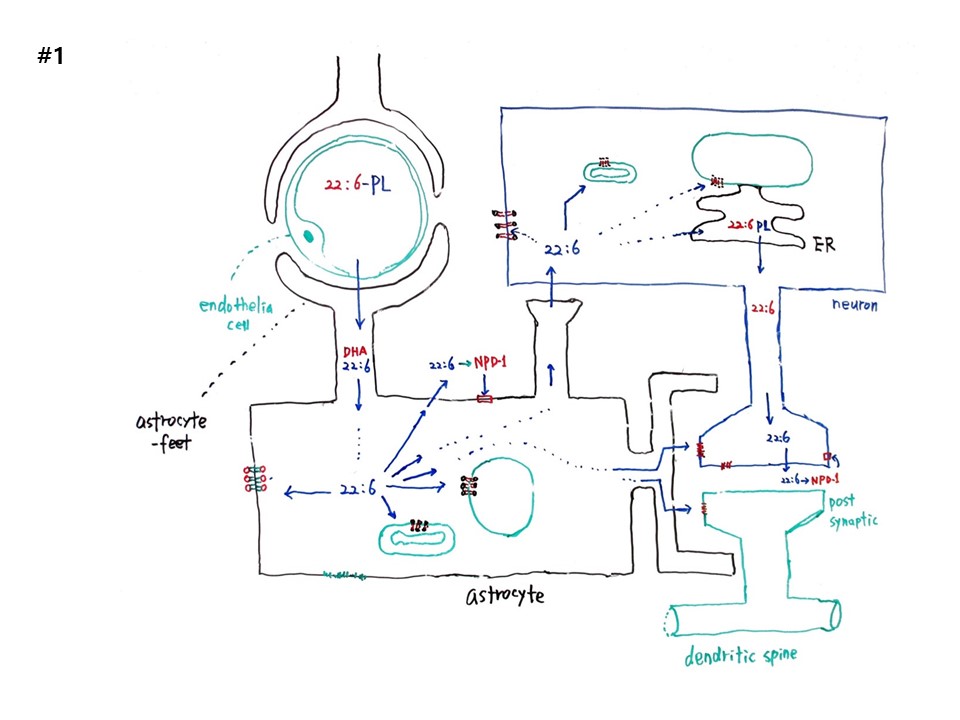 #1
22:6-PL
endothelia
cell
DHA
22:6
astrocyte
-feet
22:6
22:6 → NPD-1
astrocyte
22:6
22:6 PL
ER
neuron
22:6
22:6
22:6 → NPD-1
post
synaptic
dendritic spine